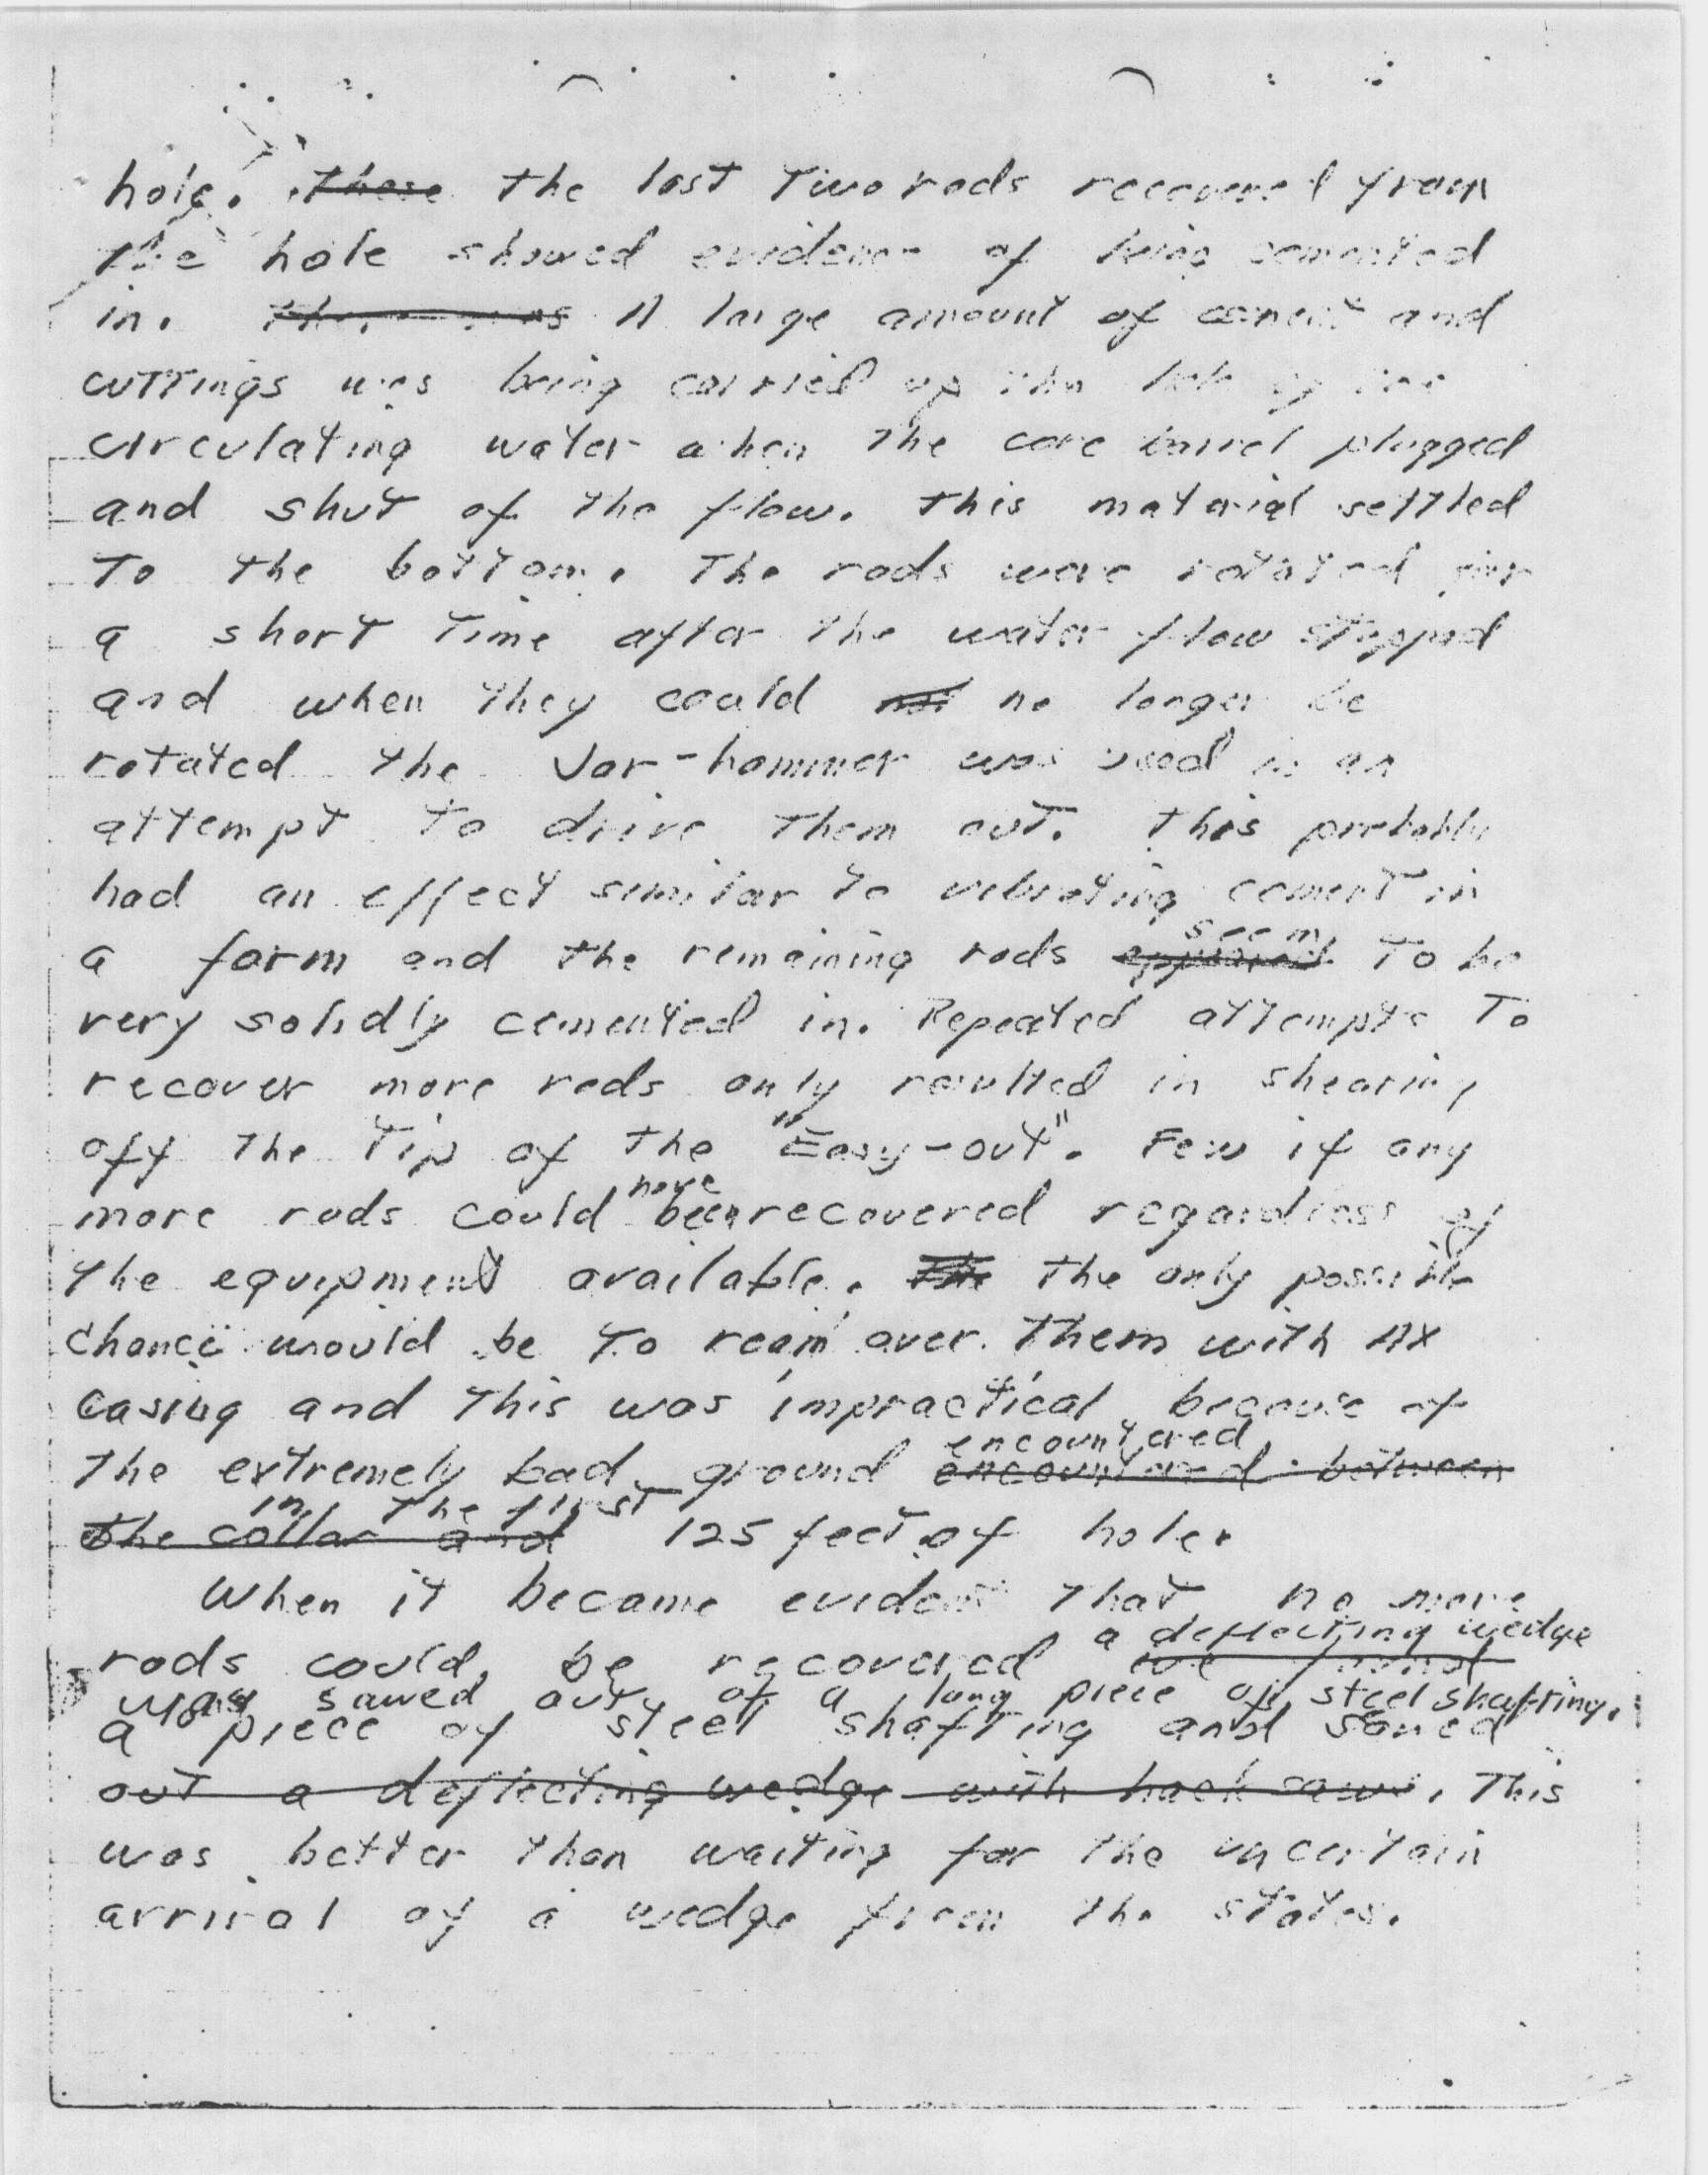 hole. these the last two rods recovered from
the hole showed evidence of being cemented
in. A large amount of cement and
cuttings was being carried up the hole by the
circulating water when the core barrel plugged
and shut of the flow. This material settled
To the bottom. The rods were rotated for
a short time after the water flow stopped
and when they could not no longer be
rotated the Jar-hammer was used in an
attempt to drive them out. this probably
had an effect similar to vibrating cement in
seem
a form and the remaining rods appeared To be
very solidly cemented in. Repeated attempts To
recover more rods only resulted in shearing
off the tip of the "Easy-out". Few if any
have
more rods could been recovered regardless of
the equipment available. The the only possible
chance would be to ream over them with AX
casing and this was impractical because of
encountered
the extremely bad ground encountered between
in the first
the collar and 125 feet of hole.
When it became evident that no more
a deflecting wedge
rods could be recovered we found
was sawed out of a long piece of steel shafting.
a piece of steel shafting and sawed
out a deflecting wedge with hack saws. This
was better than waiting for the uncertain
arrival of a wedge from the states.